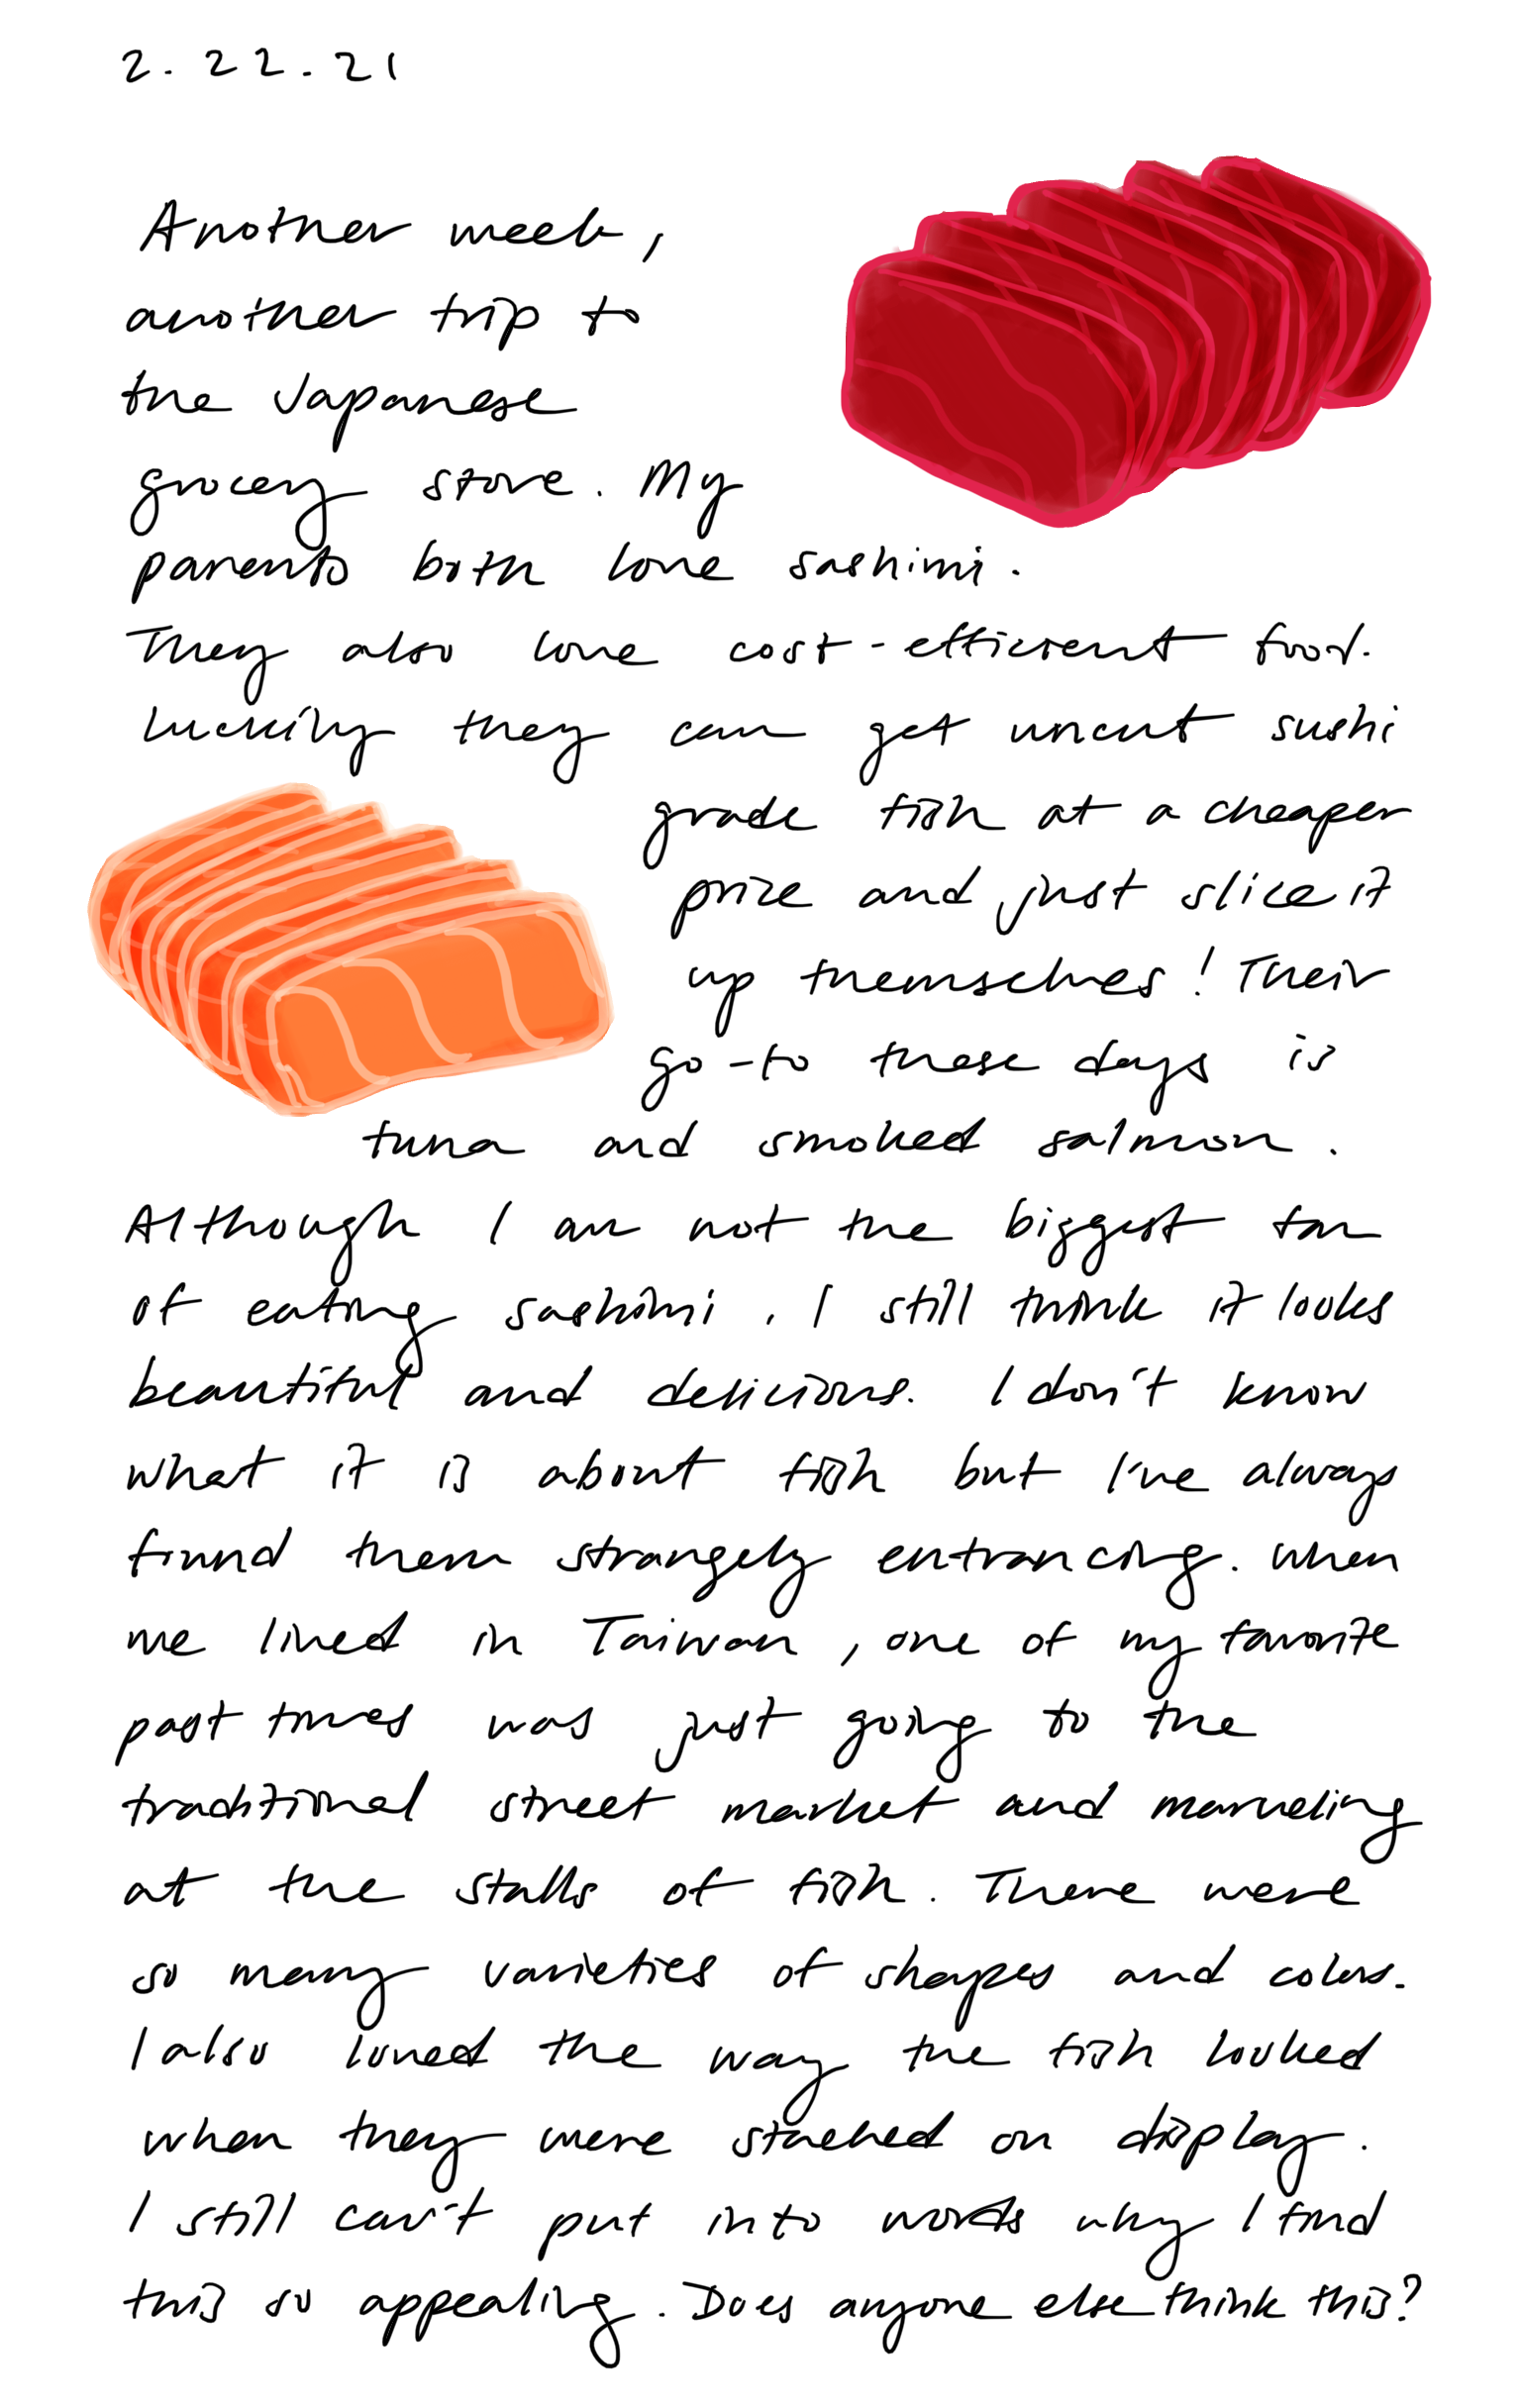 2.22.21
Another week,
another trip to
the Japanese
grocery store. My
parents both love sashimi.
They also love cost-efficient food.
Luckily they can get uncut sushi
grade fish at a cheaper
price and just slice it
up themselves! Their
go-to these days is
tuna and smoked salmon.
Although I am not the biggest fan
of eating sashimi, I still think it looks
beautiful and delicious. I don't know
what it is about fish but I've always
found them strangely entrancing. When
we lived in Taiwan, one of my favorite
past times was just going to the
traditional street market and marveling
at the stalls of fish. There were
so many varieties of shapes and colors.
I also loved the way the fish looked
when they were stacked on display.
I still can't put into words why I find
this so appealing. Does anyone else think this?